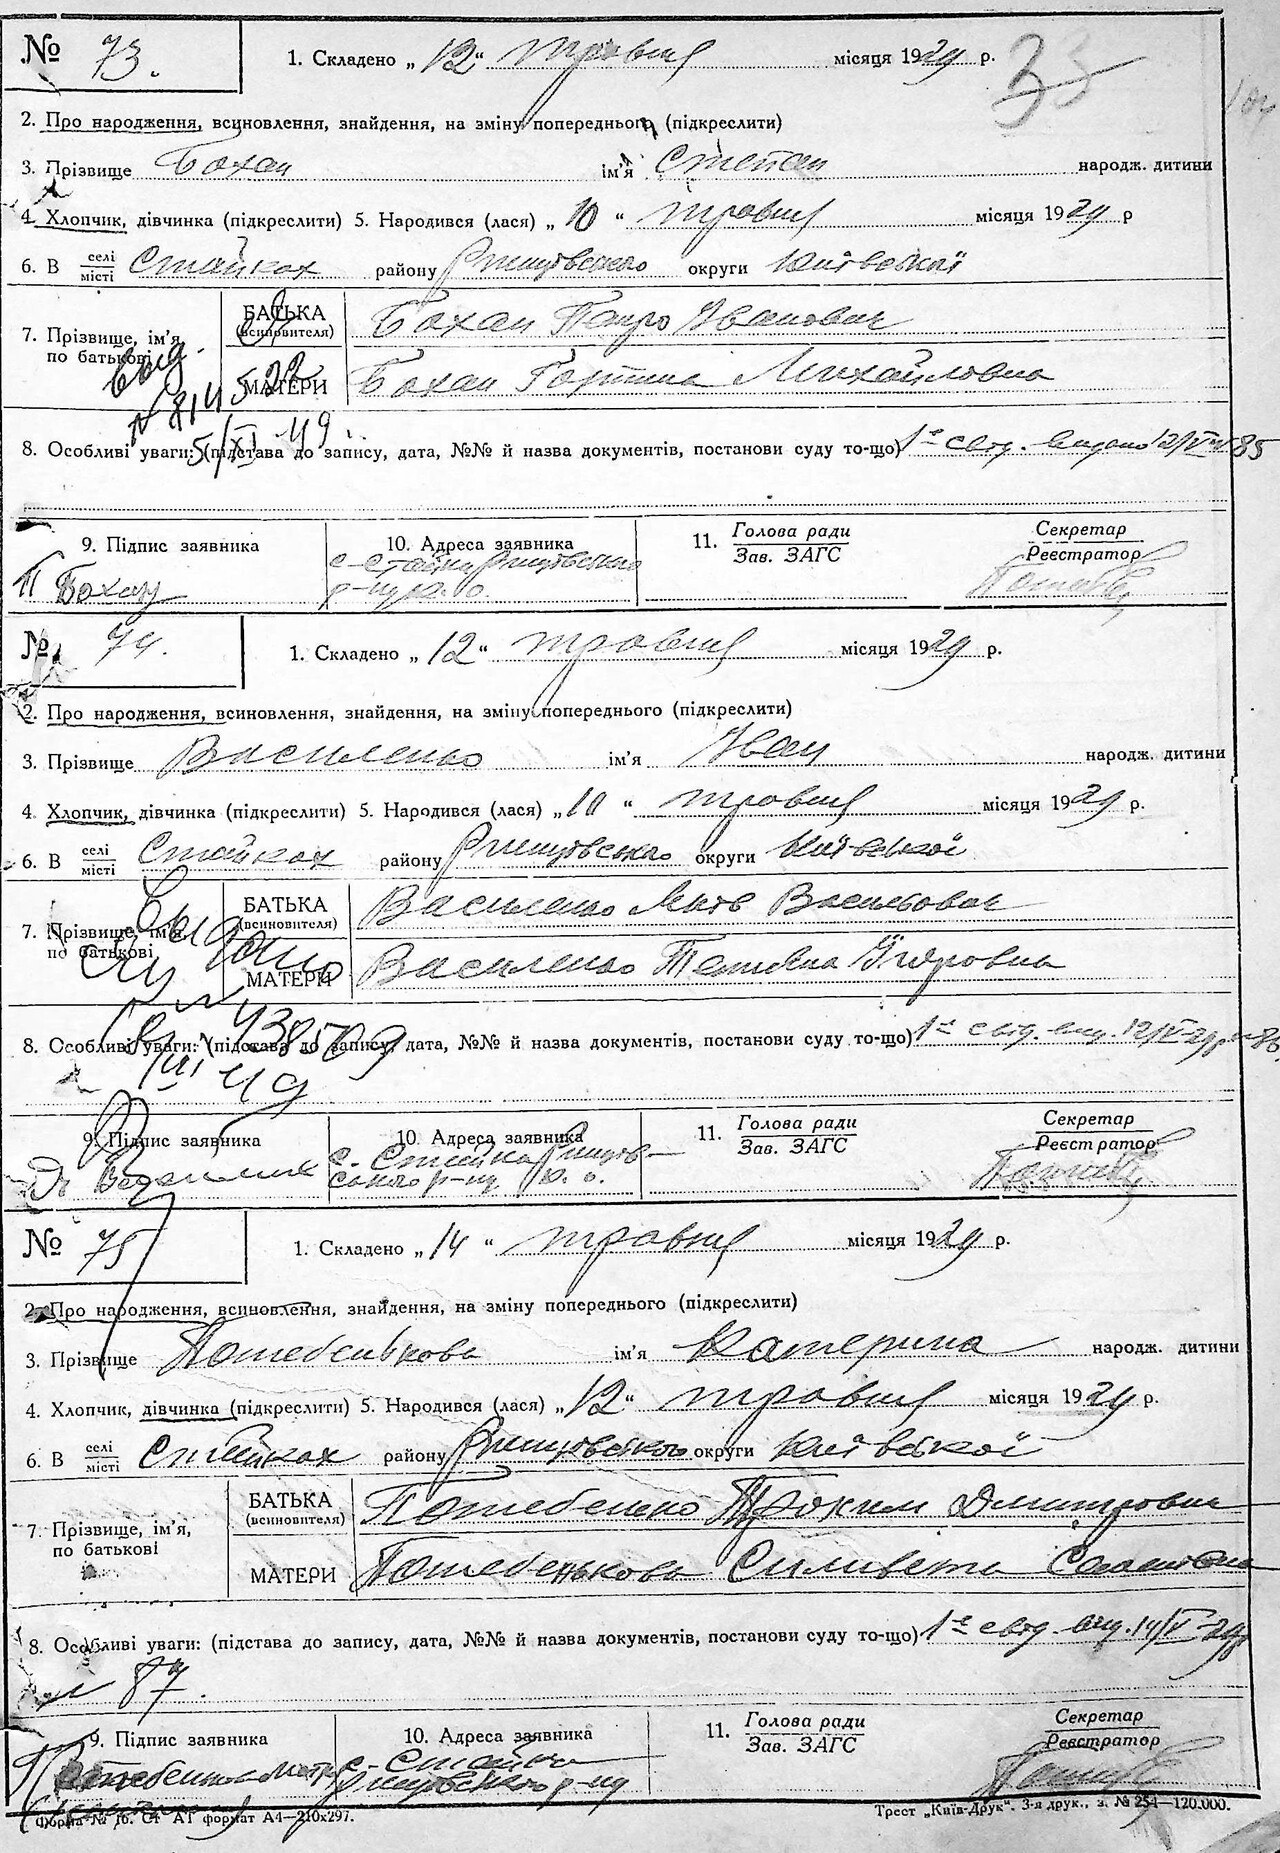 № 73. 1. Складено „12“ травня місяця 1929 р. 33
2. Про народження, всиновлення, знайдення, на зміну попереднього (підкреслити)
3. Прізвище Бохан ім'я Степан народж. дитини
4. Хлопчик, дівчинка (підкреслити) 5. Народився (лася) „10“ травня місяця 1929 р
6. В селі місті Стайках району Ржищівського округи Київської
7. Прізвище, ім'я, по батькові БАТЬКА (всиновителя) Бохан Петро Іванович
МАТЕРИ Бохан Горпина Михайловна
Выд.
№ 814522
5/XI 49
8. Особливі уваги: (підстава до запису, дата, №№ й назва документів, постанови суду то-що) 1-е свід. видано 12/V № 85
9. Підпис заявника 10. Адреса заявника 11. Голова ради Зав. ЗАГС Секретар Реєстратор
П Бохан с. Стайки Ржищівського р-ну К. о.
№ 74. 1. Складено „12“ травня місяця 1929 р.
2. Про народження, всиновлення, знайдення, на зміну попереднього (підкреслити)
3. Прізвище Василенко ім'я Іван народж. дитини
4. Хлопчик, дівчинка (підкреслити) 5. Народився (лася) „10“ травня місяця 1929 р.
6. В селі місті Стайках району Ржищівського округи Київської
7. Прізвище, ім'я, по батькові БАТЬКА (всиновителя) Василенко Васильович
МАТЕРИ Василенко Тетяна
8. Особливі уваги: (підстава до запису, дата, №№ й назва документів, постанови суду то-що) 1-е свід. вид. 12/V-29р № 86
9. Підпис заявника 10. Адреса заявника 11. Голова ради Зав. ЗАГС Секретар Реєстратор
с. Стайки Ржищів-
ського р-ну К. о.
№ 75 1. Складено „14“ травня місяця 1929 р.
2. Про народження, всиновлення, знайдення, на зміну попереднього (підкреслити)
3. Прізвище Потебенькова ім'я Катерина народж. дитини
4. Хлопчик, дівчинка (підкреслити) 5. Народився (лася) „12“ травня місяця 1929 р.
6. В селі місті Стайках району Ржищівського округи Київської
7. Прізвище, ім'я, по батькові БАТЬКА (всиновителя) Потебенько Трохим Дмитрович
МАТЕРИ Потебенькова
8. Особливі уваги: (підстава до запису, дата, №№ й назва документів, постанови суду то-що) 1-е свід. вид. 14/V-29р
№ 87.
9. Підпис заявника 10. Адреса заявника 11. Голова ради Зав. ЗАГС Секретар Реєстратор
с. Стайки
Ржищівського р-ну
Форма № 16. Ст А1 формат А4—210х297. Трест „Київ-Друк“. 3-я друк., з. № 254—120.000.